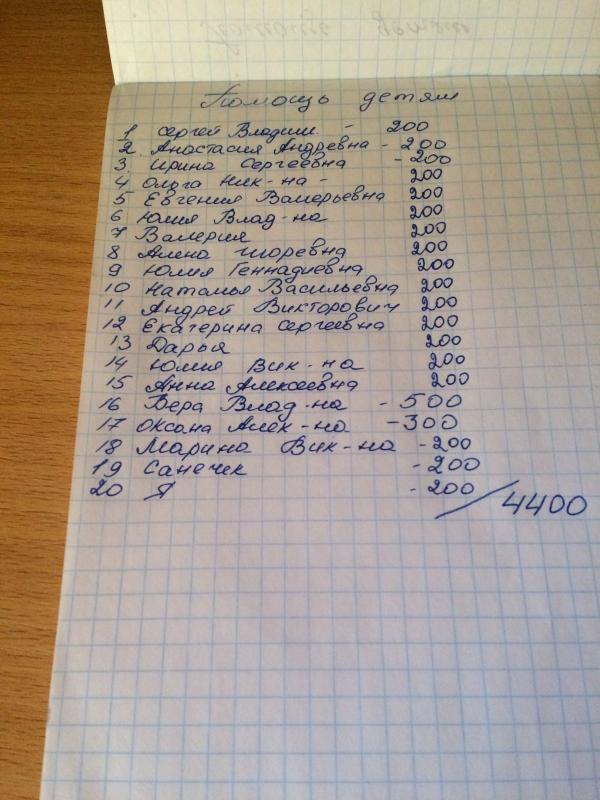 Помощь детям
1 Сергей Владим. - 200
2. Анастасия Андревна - 200
3. Ирина Сергеевна - 200
4 Ольга Ник-на - 200
5 Евгения Валерьевна 200
6 Юлия Влад-на 200
7 Валерия 200
8 Алена Игоревна 200
9 Юлия Геннадиевна 200
10 Наталья Васильевна 200
11 Андрей Викторович 200
12 Екатерина Сергеевна 200
13 Дарья 200
14 Юлия Вик-на 200
15 Анна Алексеевна 200
16 Вера Влад-на - 500
17 Оксана Алек-на - 300
18 Марина Вик-на - 200
19 Санечек - 200
20 Я - 200
/4400